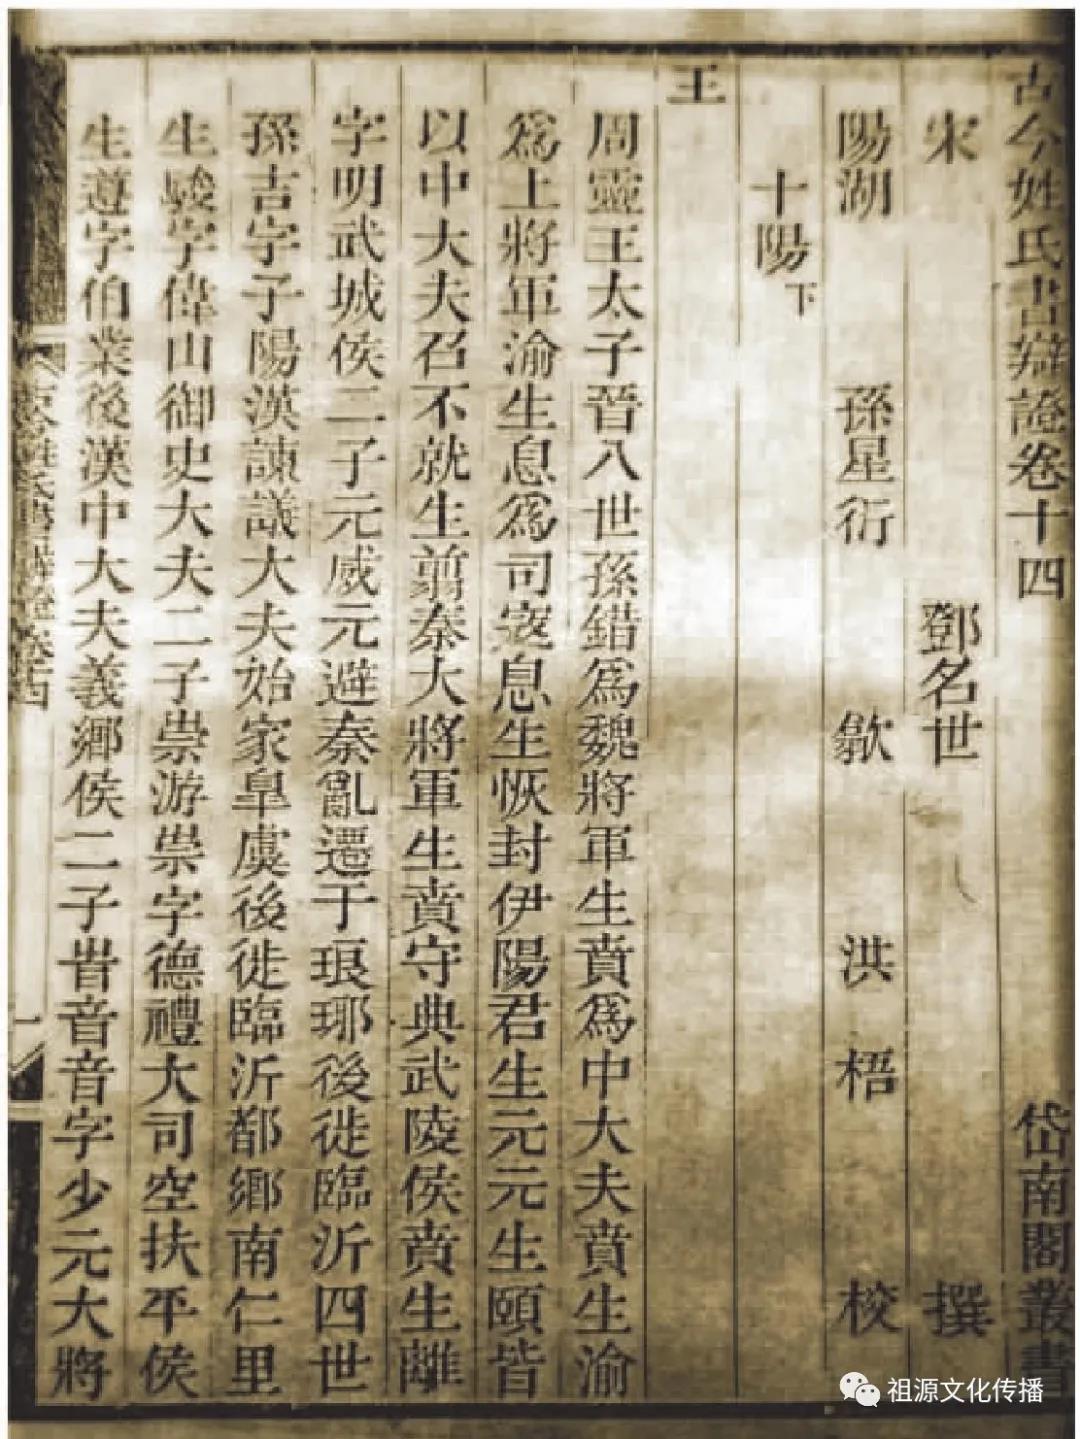 古今姓氏書辯證卷十四 岱南閣叢書
宋 鄧名世 撰
陽湖 孫星衍 歙 洪梧 校
十陽下
王
周靈王太子晉八世孫錯為魏將軍生賁為中大夫賁生渝
為上將軍渝生息為司寇息生恢封伊陽君生元元生頤皆
以中大夫召不就生翦秦大將軍生賁守典武陵侯賁生離
字明武城侯二子元威元避秦亂遷于琅琊後徙臨沂四世
孫吉字子陽漢諫議大夫始家皐虞後徙臨沂都鄉南仁里
生駿字偉山御史大夫二子崇游崇字德禮大司空扶平侯
生遵字伯業後漢中大夫義鄉侯二子甞音音字少元大將
古今姓氏書辯證卷十四
一
祖源文化传播